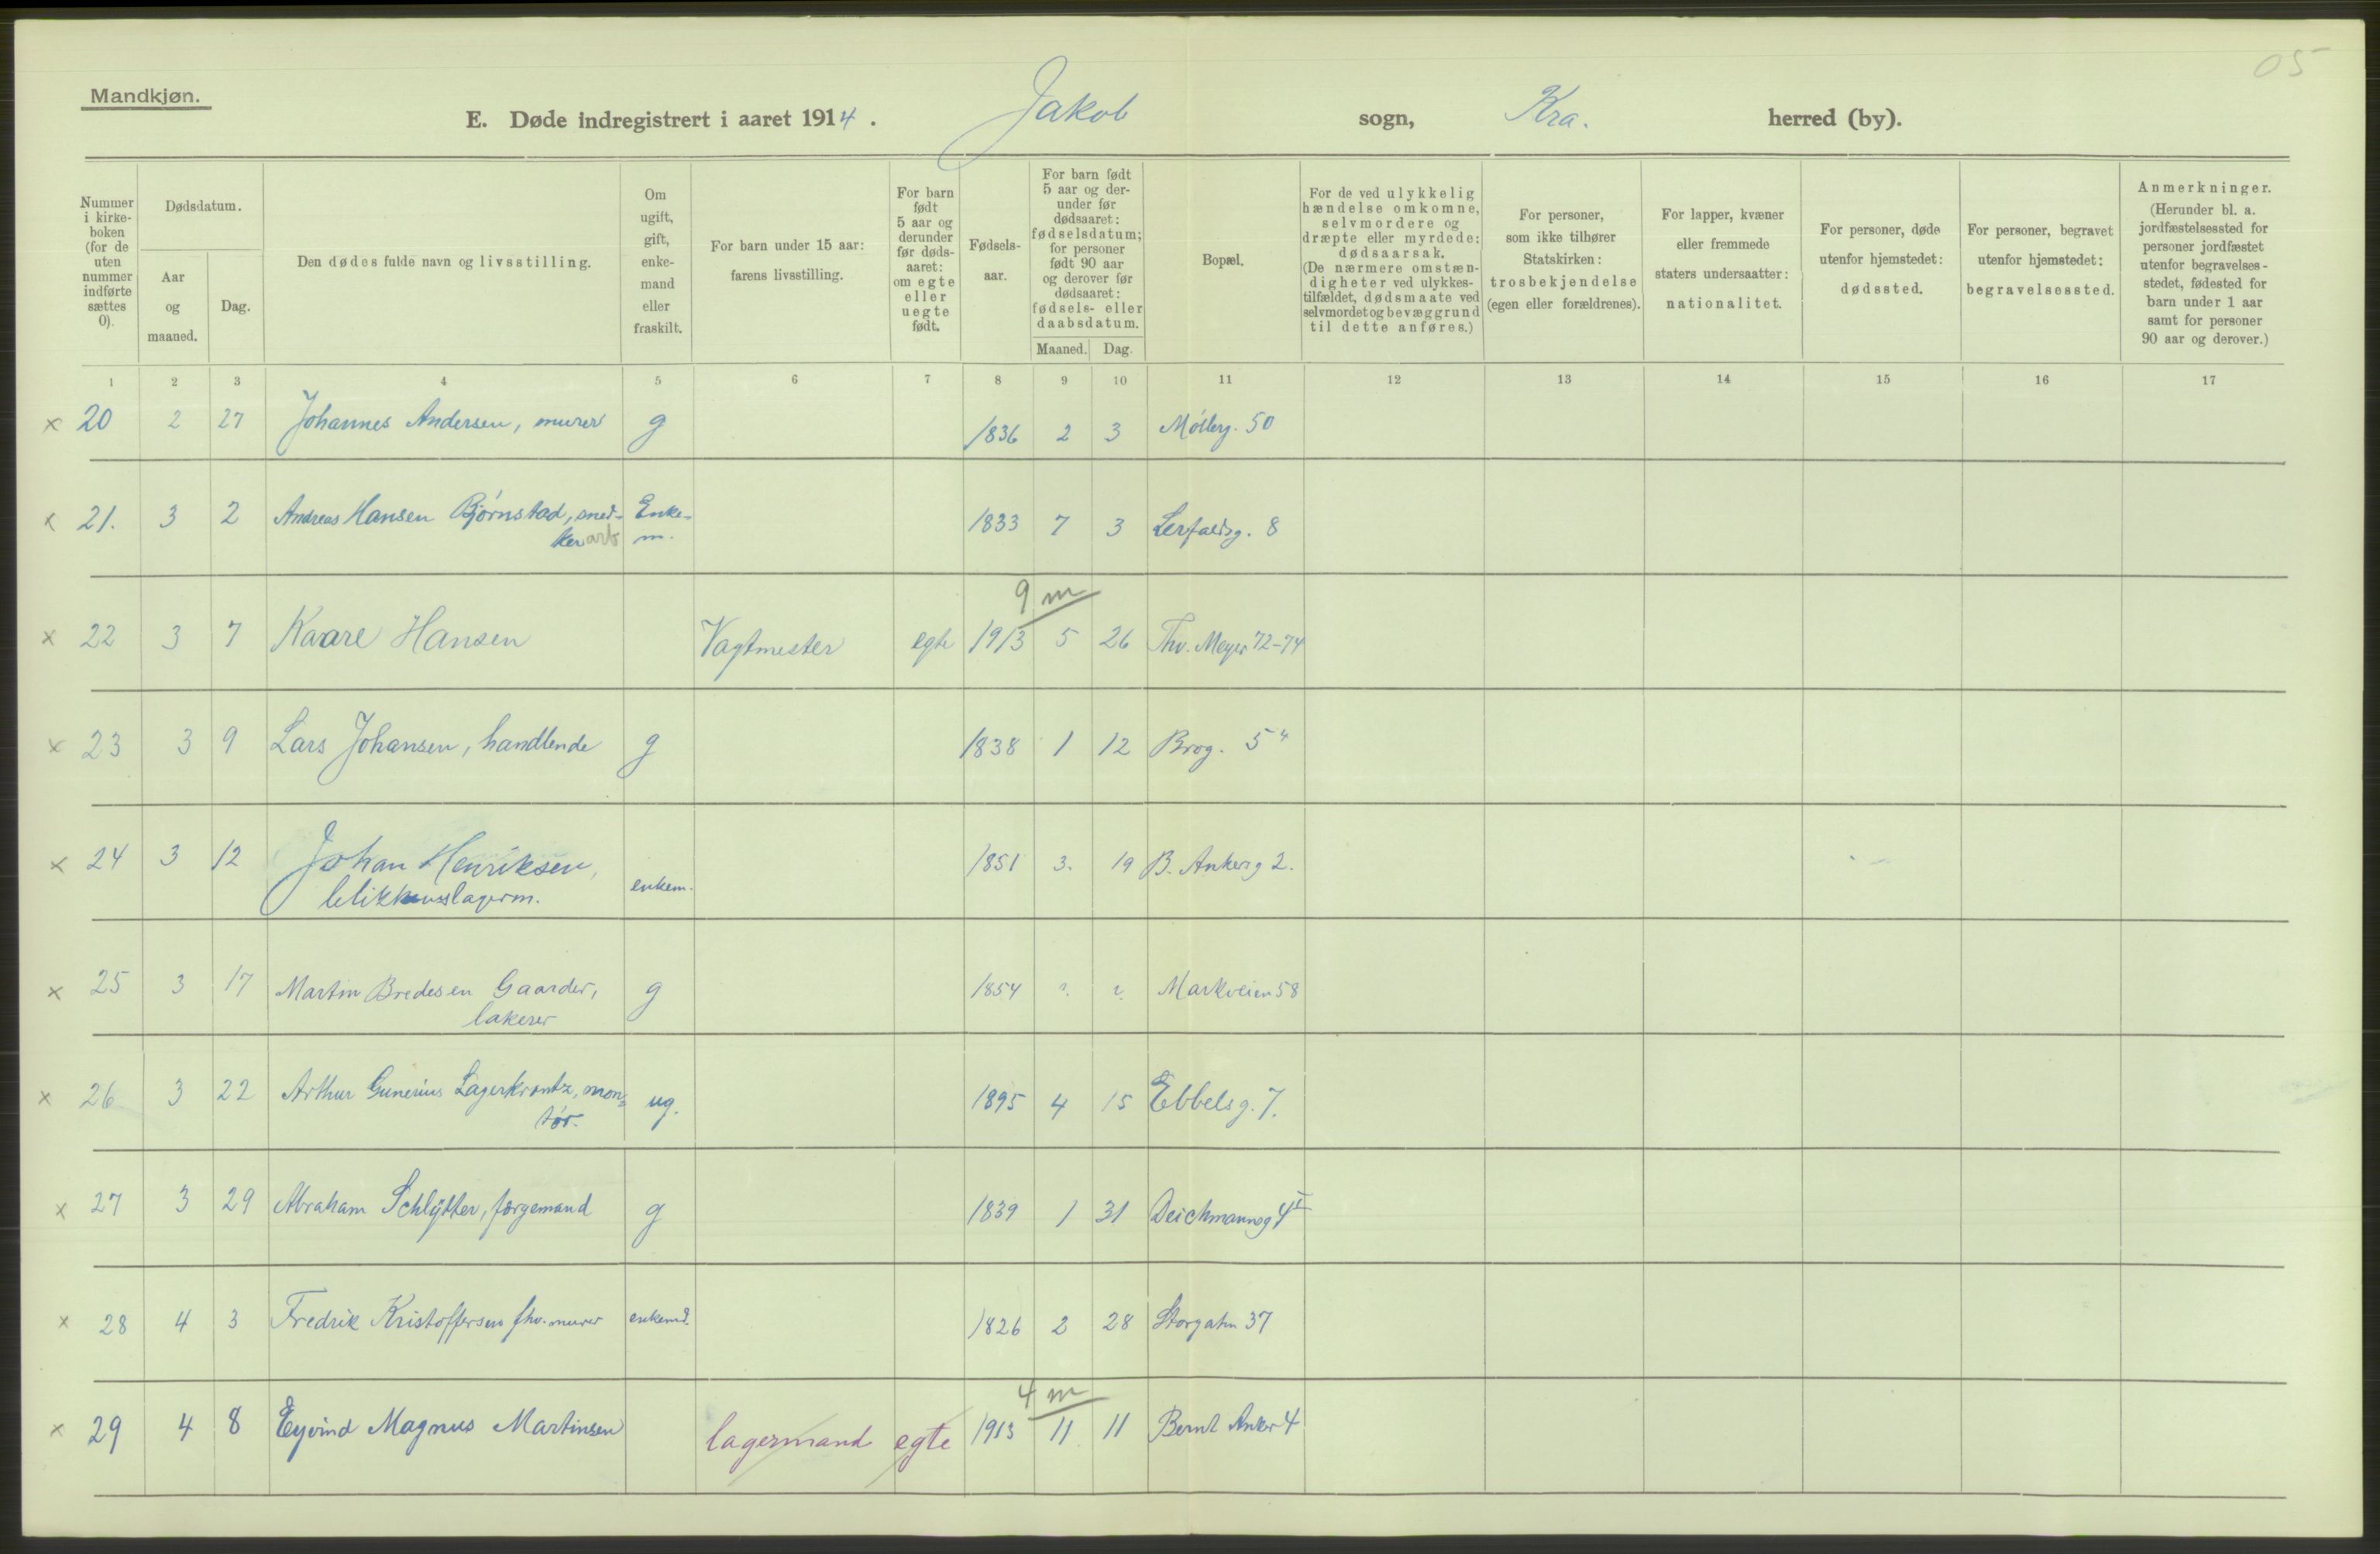 05
Mandkjøn.
E. Døde indregistrert i aaret 1914. Jakob sogn, Kra. herred (by).
Nummer i kirke-boken (for de uten nummer indførte sættes 0).
Dødsdatum.
Aar og maaned.
Dag.
Den dødes fulde navn og livsstilling.
Om ugift, gift, enke-mand eller fraskilt.
For barn under 15 aar: farens livsstilling.
For barn født 5 aar og derunder før døds-aaret: om egte eller uegte født.
Fødsels-aar.
For barn født 5 aar og der-under før dødsaaret: fødselsdatum; for personer født 90 aar og derover før dødsaaret: fødsels- eller daabsdatum.
Maaned. Dag.
Bopæl.
For de ved ulykkelig hændelse omkomne, selvmordere og dræpte eller myrdede: dødsaarsak. (De nærmere omstæn-digheter ved ulykkes-tilfældet, dødsmaate ved selvmordet og bevæggrund til dette anføres.)
For personer, som ikke tilhører Statskirken: trosbekjendelse (egen eller forældrenes).
For lapper, kvæner eller fremmede staters undersaatter: nationalitet.
For personer, døde utenfor hjemstedet: dødssted.
For personer, begravet utenfor hjemstedet: begravelsessted.
Anmerkninger. (Herunder bl. a. jordfæstelsessted for personer jordfæstet utenfor begravelses-stedet, fødested for barn under 1 aar samt for personer 90 aar og derover.)
1 2 3 4 5 6 7 8 9 10 11 12 13 14 15 16 17
x 20 2 27 Johannes Andersen, murer g 1836 2 3 Møllerg. 50
x 21. 3 2 Andreas Hansen Bjørnstad, sned- Enke- 1833 7 3 Lerfaldsg. 8
ker arb m.
9 m
x 22 3 7 Kaare Hansen Vagtmester egte 1913 5 26 Thv. Meyer 72-74
x 23 3 9 Lars Johansen, handlende g 1838 1 12 Brog. 5"
x 24 3 12 Johan Henriksen, 1851 3. 19 B. Ankerg 2.
blikkenslagerm. enkem.
x 25 3 17 Martin Bredesen Gaarder, g 1854 ?. ?. Markveien 58
lakerer
x 26 3 22 Arthur Gunerius Lagerkrantz, mon= ug. 1895 4 15 Ebbelsg. 7.
tør.
x 27 3 29 Abraham Schlytter, førgemand g 1839 1 31 Deichmannsg 4 I
x 28 4 3 Fredrik Kristoffersen fhv. murer enkemd. 1826 2 28 Storgatn 37
4 m
x 29 4 8 Eyvind Magnus Martinsen lagermand egte 1913 11 11 Bernt Anker 4